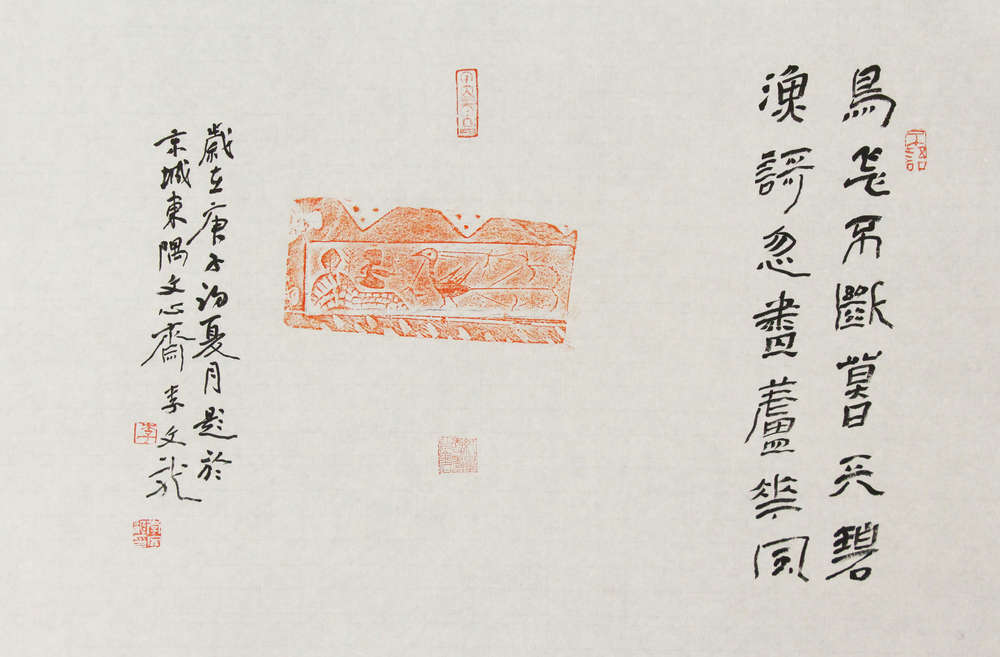 鳥飛不斷暮天碧
漁謌忽盡蘆花風
歲在庚子初夏月題於
京城東隅文心齋李文龍